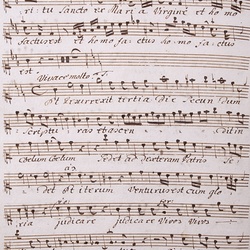 ri: tu Sancto ex Mari a Virgine et ho mo
factus est et ho mo fa ctus ho mo fa ctus
est
Vivace molto
Et resurrexit tertia Die Secun Dum
Scriptu ras et ascen
Coelum Coelum Sedet ad dexteram Patris Se
det Et iterum Venturus est Cum glo
ria judicare judicare Vivos Vivos